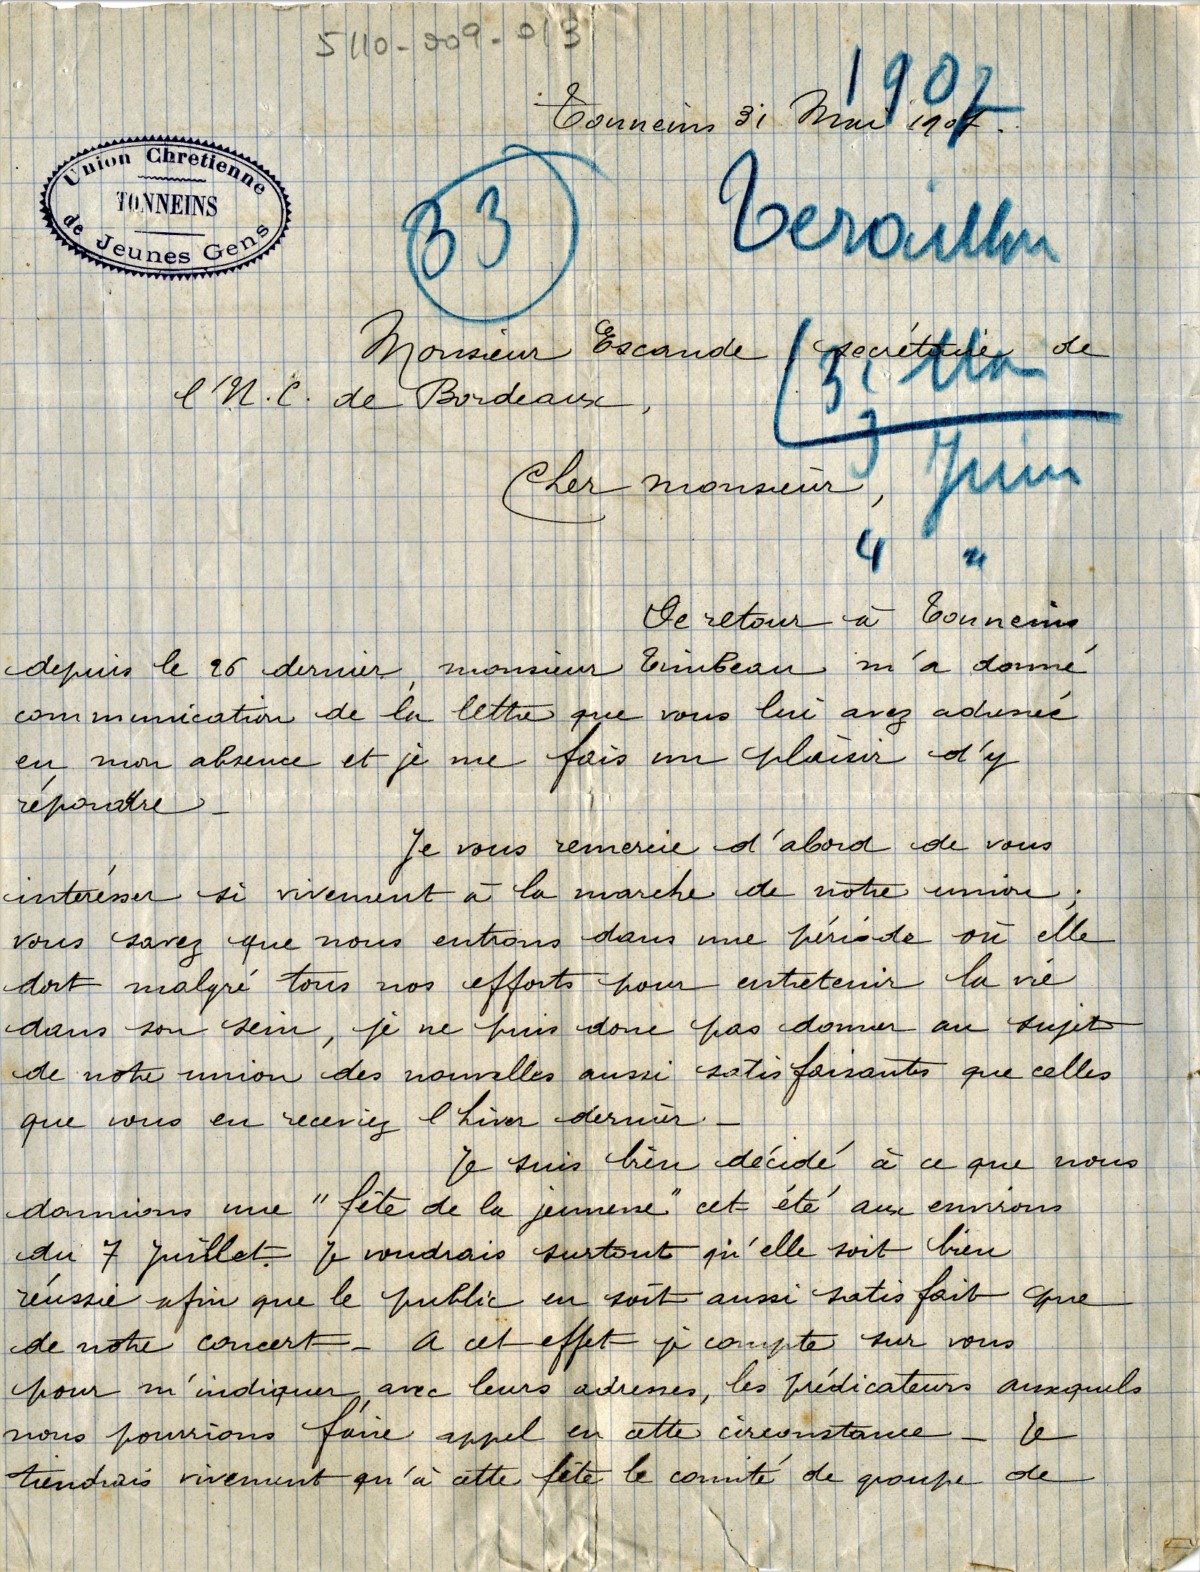 5110-009-013
1907
Tonneins 31 Mai 1907.
Union Chretienne
TONNEINS
de Jeunes Gens
33
Monsieur Escande secrétaire de
l'U.C. de Bordeaux,
31 Mai
3 Juin
4 "
Cher monsieur,
De retour à Tonneins
depuis le 26 dernier, monsieur m'a donné
communication de la lettre que vous lui avez adressée
en mon absence et je me fais un plaisir d'y
répondre_
Je vous remercie d'abord de vous
intéresser si vivement à la marche de notre union;
vous savez que nous entrons dans une période où elle
dort malgré tous nos efforts pour entretenir la vie
dans son sein, je ne puis donc pas donner au sujet
de notre union des nouvelles aussi satisfaisantes que celles
que vous en receviez l'hiver dernier_
Je suis bien décidé à ce que nous
donnions une "fête de la jeunesse" cet été aux environs
du 7 Juillet. Je voudrais surtout qu'elle soit bien
réussie afin que le public en soit aussi satisfait que
de notre concert_ A cet effet je compte sur vous
pour m'indiquer, avec leurs adresses, les prédicateurs auxquels
nous pourrions faire appel en cette circonstance_ Je
tiendrais vivement qu'à cette fête le comité de groupe de